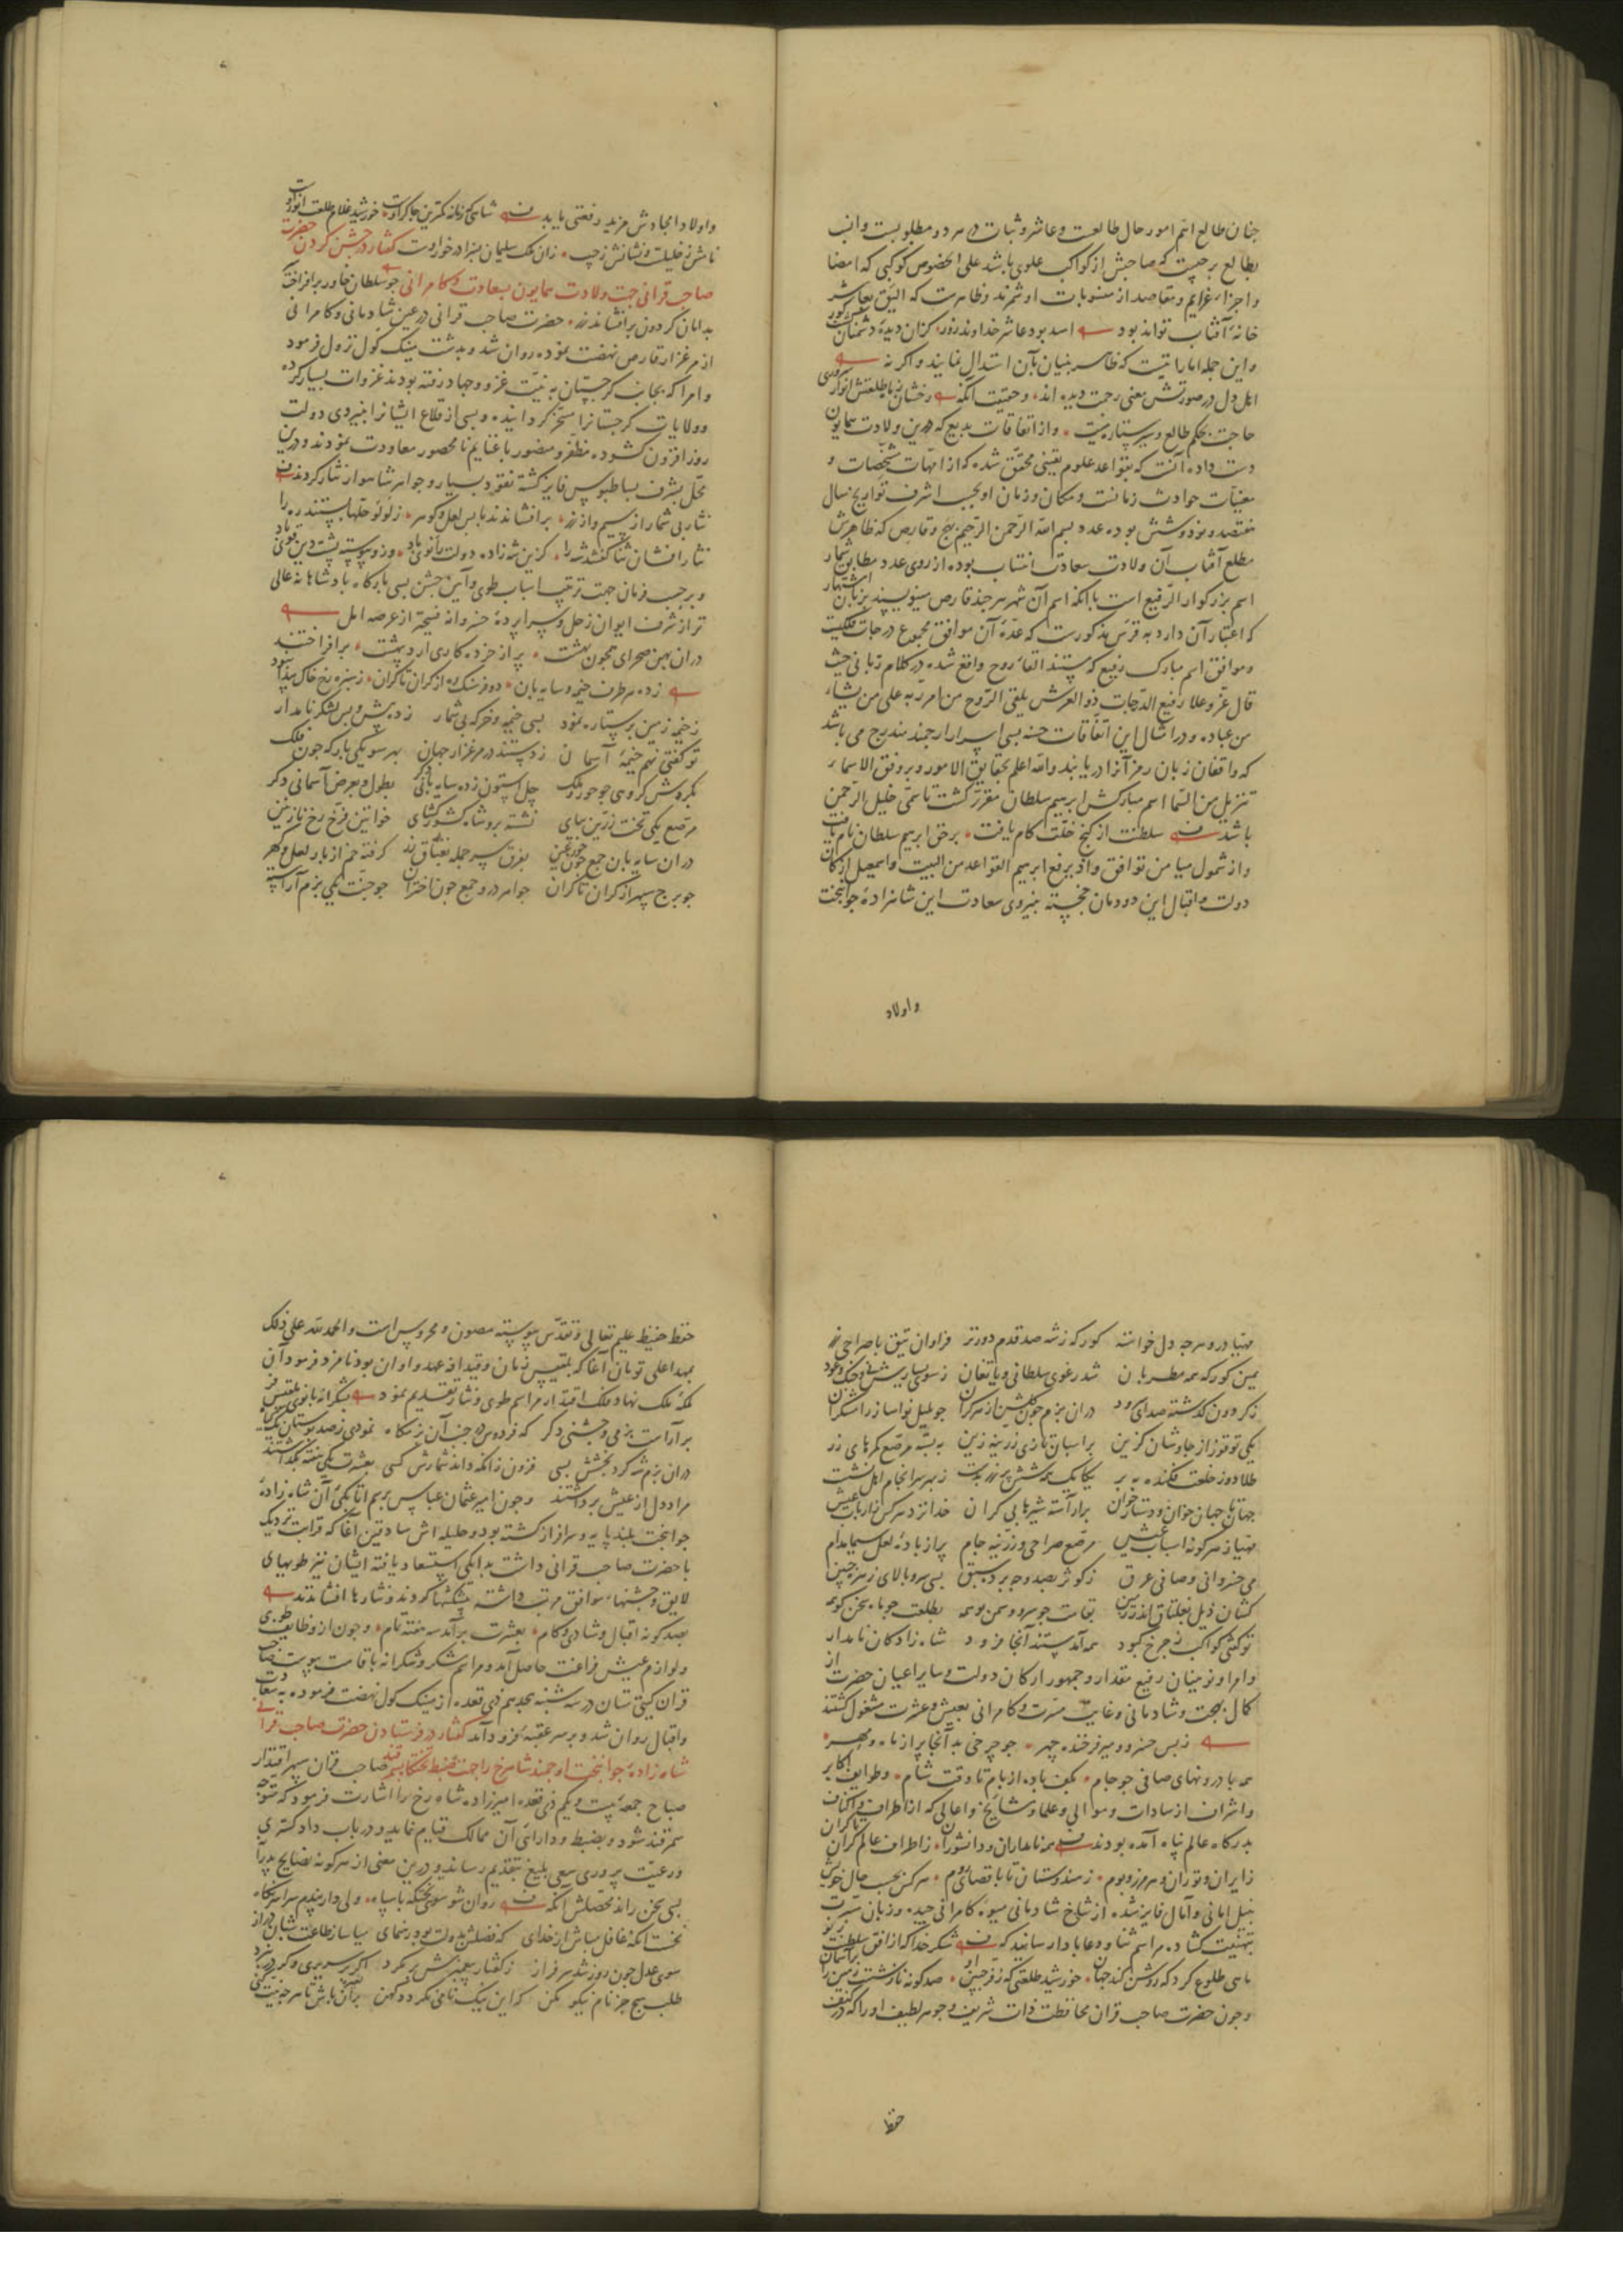 چنان طالع اتم امور حال طالعست وعاشر وثبات در هر دو مطلوبست وانسب
بطالع برجیست که صاحبش از کواکب علوی باشد علی الخصوص کوکبی که امضا
واجزاء عزایم ومقاصد از منسوبات او شمرند وظاهرست که الیق بعاشر
خانهٔ آفتاب تواند بود اسد بود عاشر خداوند زور کزان دیدهٔ دشمنان کور
واین جمله اماراتیست که ظاهر بنیان بآن استدلال نمایند واکر نه
اهل دل در صورتش معنی رحمت دیده اند وحقیقت آنکه رخشان با طلعتش انوار سروری
حاجت بحکم طالع وسیر ستاره نیست وازاتفاقات بدیع که درین ولادت همایون
دست داده آنست که بقواعد علوم یقینی محقق شده که از امهات مشخصات و
معینات حوادث زمانست ومکان وزمان او بحسب اشرف تواریخ سال
هفتصد ونود وشش بوده عدد بسم الله الرحمن الرحیم وقارص که ظاهرش
مطلع آفتاب آن ولادت سعادت انتساب بوده از روی عدد مطابق شمار
اسم بزرکوار الرفیع است با آنکه اسم آن شهر هرچند قارص مینویسند بزبان اشتهار
که اعتبار آن دارد به قرس مذکورست که عدهٔ آن موافق مجموع درجات فلکیست
وموافق اسم مبارک رفیع که مستند القاء روح واقع شده در کلام ربانی حیث
قال عز وعلا رفیع الدرجات ذو العرش یلقی الروح من امره علی من یشاء
من عباده ودر امثال این اتفاقات حسنه بسی اسرار ارجمند مندرج می باشد
که واقفان زبان رمز آنرا دریابند والله اعلم بحقایق الامور وبر وفق الاسماء
تنزیل من السما اسم مبارکش ابرهیم سلطان مقرر کشت تا سمی خلیل الرحمن
باشد سلطنت از کنج خلت کام یافت برحق ابرهیم سلطان نام یافت
واز شمول میامن توافق واذ یرفع ابرهیم القواعد من البیت واسمعیل ارکان
دولت واقبال این دودمان خجسته بنیروی سعادت این شاهزادهٔ جوانبخت
واولاد
واولاد امجادش مزید رفعتی یابد شاهی که زمانه کمترین چاکر اوست خورشید غلام طلعت انور اوست
نامش ز خلیلست ونشانش ز حبیب زان ملک سلیمان بسزا درخور اوست کفتار در جشن کردن حضرت
صاحب قرانی جهت ولادت همایون بسعادت وکامرانی چو سلطان خاور برافراخت
بدامان کردون برافشاند زر حضرت صاحب قرانی در عین شادمانی وکامرانی
از مرغزار قارص نهضت نموده روان شد وبدشت مینک کول نزول فرمود
وامرا که بجانب کرجستان به نیت غزو وجهاد رفته بودند غزوات بسیار کرده
وولایات کرجستانرا مسخر کردانیده وبسی از قلاع ایشانرا بنیروی دولت
روزافزون کشوده مظفر ومنصور با غنایم نامحصور معاودت نمودند ودرین
محل بشرف بساطبوس فایز کشته نقود بسیار وجواهر شاهوار نثار کردند
نثار بی شمار از سیم واز زر برافشاندند با بس لعل وکوهر ز لؤلؤ حلها بستند ره را
نثار افشان ثنا کفتند شه را کزین شه زاده دولت را نوی باد وزو پیوسته پشت دین قوی باد
وبرحسب فرمان جهت ترتیب اسباب طوی وآیین جشن بسی بارکاه پادشاهانه عالی
تر از شرف ایوان زحل وسراپردهٔ خسروانه فسیحتر از عرصه امل
دران بهین صحرای همچون بهشت پر از خرده کاری اردیبهشت برافراختند
زده هر طرف خیمه وسایه بان دو فرسنک ره از کران تا کران ز سبزه رخ خاک پیدا نبود
ز خیمه زمین پر ستاره نمود بسی خیمه وخرکه بی شمار زده پیش وپس لشکر نامدار
تو کفتی نهم خیمهٔ آسمان زدستند در مرغزار جهان بهر سو یکی بارکه چون فلک
بکردش کروهی چو حور وملک چل استون زده سایه بانی دکر بطول وبعرض آسمانی دکر
مرصع یکی تخت زرین بپای نشسته برو شاه کشورکشای خواتین فرخ رخ نازنین
دران سایه بان جمع چون حور عین بفرق سر جمله بغتاق زر کرفته خم از بار لعل وکهر
چو برج سپهر از کران تا کران جواهر درو جمع چون اختران چو جنت یکی بزم آراسته
مهیا درو هرچه دل خواسته کورکه زشه صد قدم دورتر فراوان تتق با صراحی زر
یمین کورکه همه مطربان شد رغوی سلطانی وباتغان ز سوی یسارش نی وچنک وعود
ز کردون کذشته صدای سرود دران بزم چون کلشن از هر کران چو بلبل نواساز رامشکران
یکی توقوز از چاوشان کزین براسبان تازی زرینه زین به بسته مرصع کمرهای زر
طلادوز خلعت فکنده به بر یکایک همه شش پر زر بدست ز بهر سرانجام اهل نشست
جهان تا جهان خوان ودستار خوان برآراسته شیرهٔ بی کران خدا نزد هر کس از ارباب عیش
مهیا ز هرکونه اسباب عیش مرصع صراحی وزرینه جام پر از بادهٔ لعل سیما مدام
می خسروانی وصافی عرق ز کوثر بصد وجه برده سبق بسی سرو بالای زهره جبین
کشان ذیل بغلتاق اندر زمین بقامت چو سرو وسمن بو همه بطلعت چو ماه سخن کو همه
تو کفتی کواکب ز چرخ کبود همه آمدستند آنجا فرود شاه زادکان نامدار
وامرا ونوینان رفیع مقدار وجمهور ارکان دولت وسایر اعیان حضرت از
کمال بهجت وشادمانی وغایت مسرت وکامرانی بعیش وعشرت مشغول کشتند
زبس خسرو ومیر فرخنده چهر چو چرخی بد آنجا پر از ماه ومهر
همه با درونهای صافی چو جام بکف باده از بام تا وقت شام وطوایف اکابر
واشراف از سادات وموالی وعلما ومشایخ واعالی که از اطراف واکناف
بدرکاه عالم پناه آمده بودند همه نامداران ودانشوران ز اطراف عالم کران تا کران
ز ایران وتوران وهر مرز وبوم ز هندوستان تا باقصای روم هر کس بحسب حال خویش
بنیل امانی وآمال فایز شده از شاخ شادمانی میوهٔ کامرانی چیده وزبان مسرت
بتهنیت کشاده مراسم ثنا ودعا بادا رسانید که شکر خدا که از افق سلطنت بنو
ماهی طلوع کرد که روشن کند جهان خورشید طلعتی که ز فر جبین او صد کونه نازهست زمین را بر آسمان
وچون حضرت صاحب قران محافظت ذات شریف وجوهر لطیف او را که در کنف
حفظ
حفظ حفیظ علیم تعالی وتقدس پیوسته مصون ومحروس است والحمد لله علی ذلک
بمهد اعلی تومان آغا که بلقیس زمان وقیدافه عهد واوان بود نامزد فرمود آن
ملکهٔ ملک نهاد وفلک اقتدار مراسم طوی ونثار تقدیم نمود بشکرانه بانوی بلقیس فر
برآراست بزمی وجشنی دکر که فردوس در جنب آن بزمکاه نمودی ز صد بوستان یک کیاه
دران بزم شه کرد بخشش بسی فزون زانکه داند شمارش کسی بعشرت یکی هفته بکذاشتند
مراد دل از عیش برداشتند وچون امیر عثمان عباس برسم اتابکی آن شاه زادهٔ
جوانبخت بلند پایه وسرافراز کشته بود وحلیله اش سادقین آغا که قرابت نزدیک
با حضرت صاحب قرانی داشت بدایکی استسعاد یافته ایشان نیز طویهای
لایق وجشنهاء موافق مرتب داشته پیشکشها کردند ونثارها افشاندند
بصد کونه اقبال وشادی وکام بعشرت برآمد سه هفته تمام وچون از وظایف طوی
ولوازم عیش فراغت حاصل آمد ومراسم شکر وشکرانه باقامت پیوست صاحب
قران کیتی ستان در سه شنبه هجدهم ذی قعده از مینک کول نهضت فرموده به سعادت
واقبال روان شد وبر سر عقبه فرود آمد کفتار در فرستادن حضرت صاحب قرانی
شاه زادهٔ جوانبخت ارجمند شاهرخ را جهت ضبط تختکاه سمرقند صاحب قران سپهر اقتدار
صباح جمعه بیست ویکم ذی قعده امیرزاده شاه رخ را اشارت فرمود که متوجه
سمرقند شود وبضبط ودارائی آن ممالک قیام نماید ودر باب دادکستری
ورعیت پروری سعی بلیغ بتقدیم رساند ودرین معنی از هرکونه نصایح پدرانه
بسی سخن راند محصلش آنکه روان شو سوی تختکه با سپاه ولی دار پندم سراسر نکاه
نخست آنکه غافل مباش از خدای که فضلش بدولت بود رهنمای میاساز طاعت شبان دراز
سوی عدل چون روز شد سرفراز ز کفتار پیمبرش بر مکرد اکر سروری وکر در نبرد
طلب هیچ جز نام نیکو مکن که این نیک نامی نکردد کهن بر آن باش تا هرچه نیت کنی